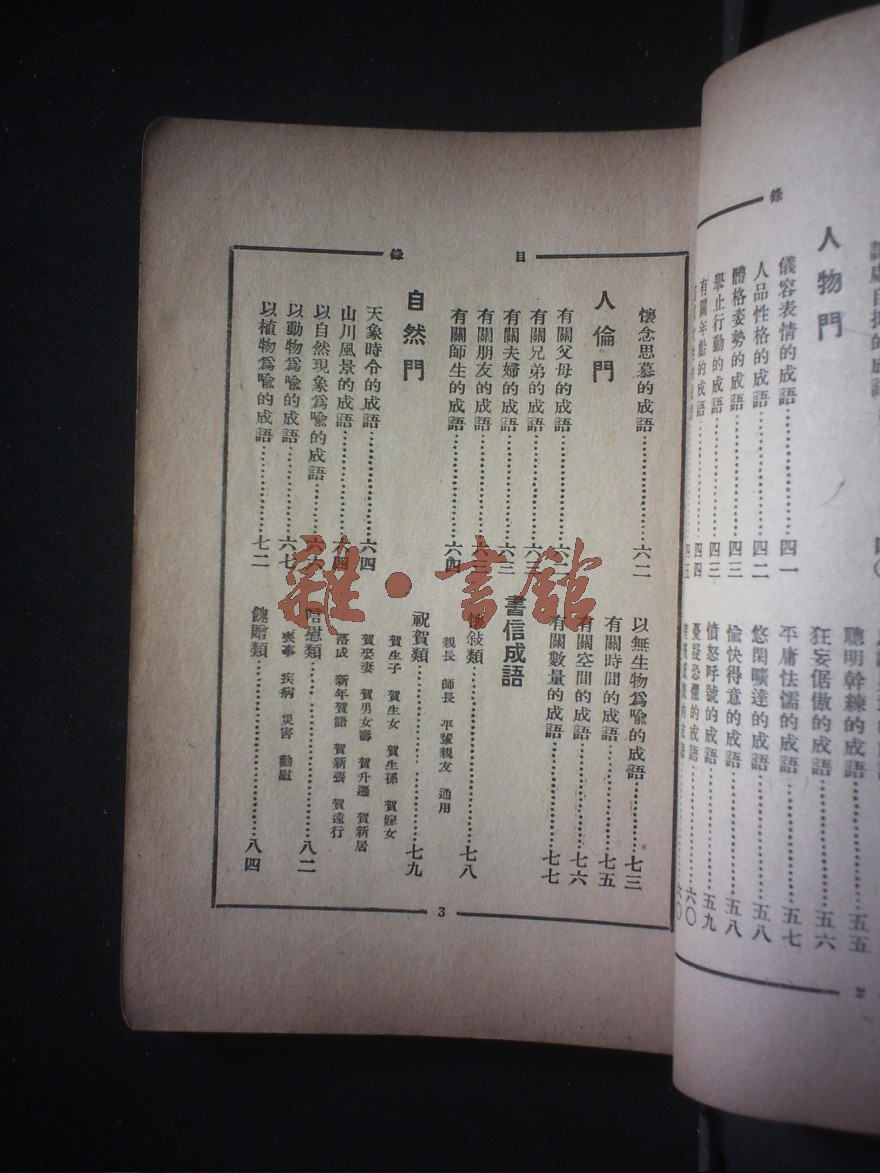 人物門
儀容表情的成語……四一
人品性格的成語……四二
體格姿勢的成語……四三
舉止行動的成語……四三
有關年齡的成語……四四
聰明幹練的成語……五五
狂妄倨傲的成語……五六
平庸怯懦的成語……五七
悠閑曠達的成語……五八
愉快得意的成語……五八
憤怒呼號的成語……五九
憂疑恐懼的成語……六〇
錄
目錄
懷念思慕的成語……六二
人倫門
有關父母的成語……六二
有關兄弟的成語……六三
有關夫婦的成語……六三
有關朋友的成語……六三
有關師生的成語……六四
自然門
天象時令的成語……六四
山川風景的成語……六四
以自然現象爲喩的成語……六六
以動物爲喩的成語……六七
以植物爲喩的成語……七二
以無生物爲喩的成語……七三
有關時間的成語……七五
有關空間的成語……七六
有關數量的成語……七七
書信成語
敍類……七八
親長 師長 平輩親友 通用
祝賀類……七九
賀生子 賀生女 賀生孫 賀嫁女
賀娶妻 賀男女壽 賀升遷 賀新居
落成 新年賀語 賀新張 賀遠行
唁慰類……八二
喪事 疾病 災害 勸慰
餽贈類……八四
3
雜·書館